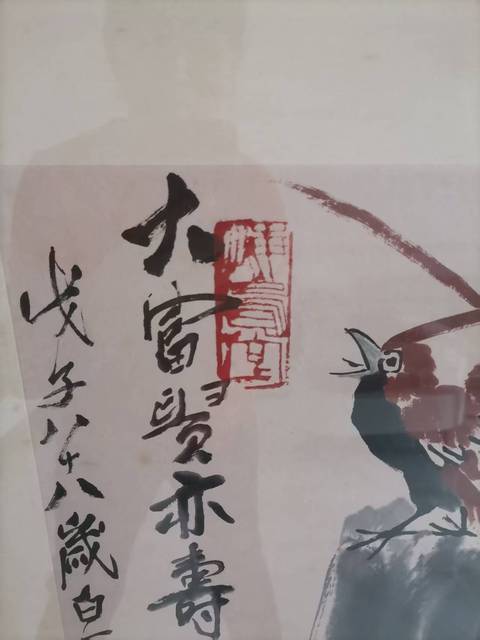 大富賢亦壽
戊子八十八歲白